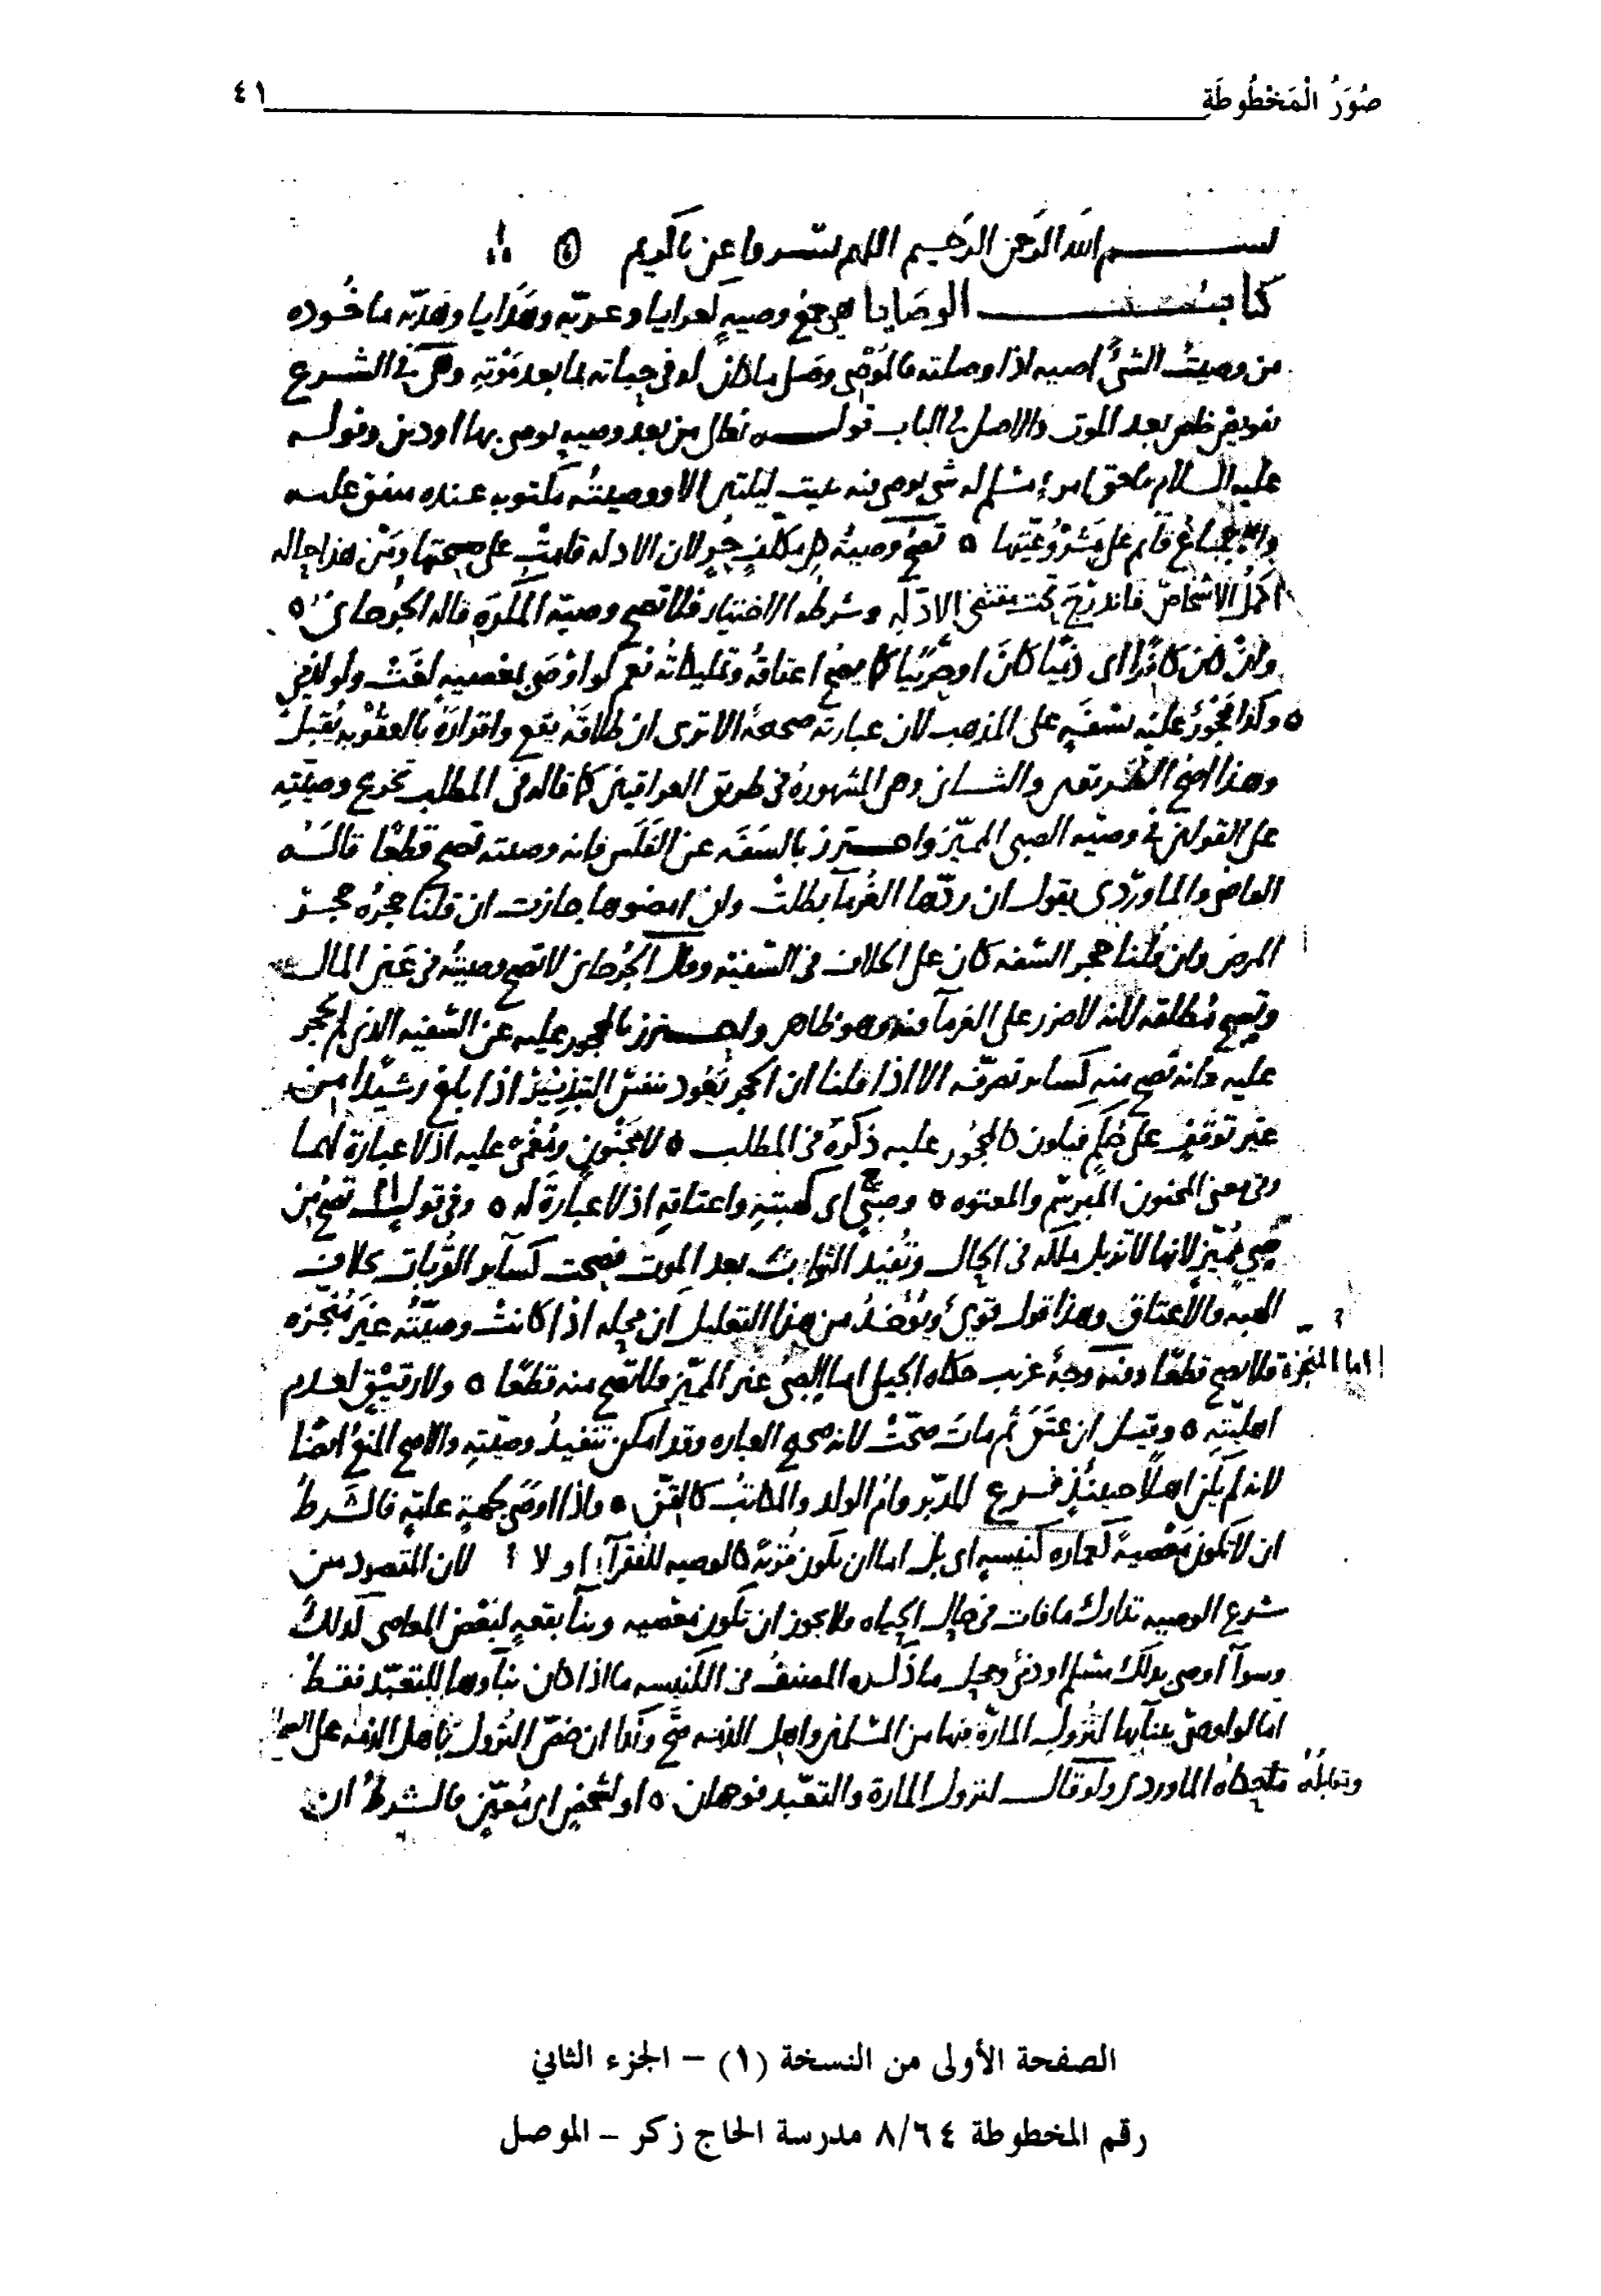 صُوَرُ الْمَخْطُوطَةِ ٤١
بسم الله الرحمن الرحيم اللهم يسر واعن ياكريم
كتاب الوصايا هي جمع وصيه كعرايا وعريه وهدايا وهديه ماخوذه
من وصيت الشئ اصيه اذا وصلته فالموصي وصل ماكان له في حياته بما بعد موته وهي في الشرع
تفويض خاص بعد الموت والاصل في الباب قوله تعالى من بعد وصيه يوصى بها اودين وقوله
عليه السلام ماحق امرء مسلم له شي يوصي فيه يبيت ليلتين الا ووصيته مكتوبه عنده متفق عليه
والاجماع قائم على مشروعيتها ٥ تصح وصية كل مكلف حر لان الادله قامت على صحتها ومن هذا حاله
اكمل الاشخاص فاندرج تحت مقتضى الادله وشرطه الاختيار فلا تصح وصية المكره قاله الجرجاني ٥
وان كان كافرا اي ذميا كان او حربيا كما يصح اعتاقه وتمليكاته نعم لو اوصى بمعصيه لغت ولو لذمي
٥ وكذا محجور عليه بسفه على المذهب لان عبارته صحيحة الا ترى ان طلاقه يقع واقراره بالعقوبه يقبل
وهذا اصح الطريقين والثاني وهي المشهوره في طريق العراقيين كما قاله في المطلب تخريج وصيته
على القولين في وصيه الصبي المميز واحترز بالسفه عن الفلس فانه وصيته تصح قطعا قاله
القاضي والماوردي يقول ان ردها الغرما بطلت وان امضوها جازت ان قلنا حجره حجر
المرض وان قلنا حجر السفه كان على الخلاف في السفيه وقال الجرجاني لا تصح وصيته في عين المال
وتصح مطلقه لانه لا ضرر على الغرما فيه وهو ظاهر واحترز بالمحجور عليه عن السفيه الذي لم يحجر
عليه فانه تصح منه كساير تصرفه الا اذا قلنا ان الحجر يعود بنفس التبذير اذا بلغ رشيدا من
غير توقف على حكم فيكون كالمحجور عليه ذكره في المطلب ٥ لا مجنون ومغمى عليه اذ لا عبارة لهما
وفي معنى المجنون المبرسم والمعتوه ٥ وصبي اي كهبته واعتاقه اذ لا عبارة له ٥ وفي قول تصح من
صبي مميز لانها لا تزيل ملكه في الحال وتفيد الثواب بعد الموت فصحت كساير القربات بخلاف
الهبه والاعتاق وهذا قول قوي ويؤخذ من هذا التعليل ان محله اذا كانت وصيته غير منجزه
اما المنجزة فلا تصح قطعا وفيه وجه غريب حكاه الجيلي اما الصبي غير المميز فلا تصح منه قطعا ٥ ولا رقيق لعدم
اهليته ٥ وقيل ان عتق ثم مات صحت لانه صحيح العباره وقد امكن تنفيذ وصيته والاصح المنع ايضا
لانه لم يكن اهلا حينئذ فرع المدبر وام الولد والمكاتب كالقن ٥ واذا اوصى لجهة عامة فالشرط
ان لا تكون معصية كعماره كنيسه اي بل اما ان يكون قربة كالوصيه للفقرآ او لا لان المقصود من
شرع الوصيه تدارك مافات في حال الحياه فلا يجوز ان تكون معصيه وبنآ بقعه لبعض المعاصي كذلك
وسوآ اوصى بذلك مسلم او ذمي ومحل ماذكره المصنف في الكنيسه ما اذا كان بناوها للتعبد فقط
اما لو اوصى ببنآيها لنزول المارة فيها من المسلمين واهل الذمه صح وكذا ان خص النزول باهل الذمه على
ومقابله حكاه الماوردي ولو قال لنزول المارة والتعبد فوجهان ٥ او لشخص اي معين فالشرط ان
الصفحة الأولى من النسخة (١) – الجزء الثاني
رقم المخطوطة ٨/٦٤ مدرسة الحاج زكر – الموصل